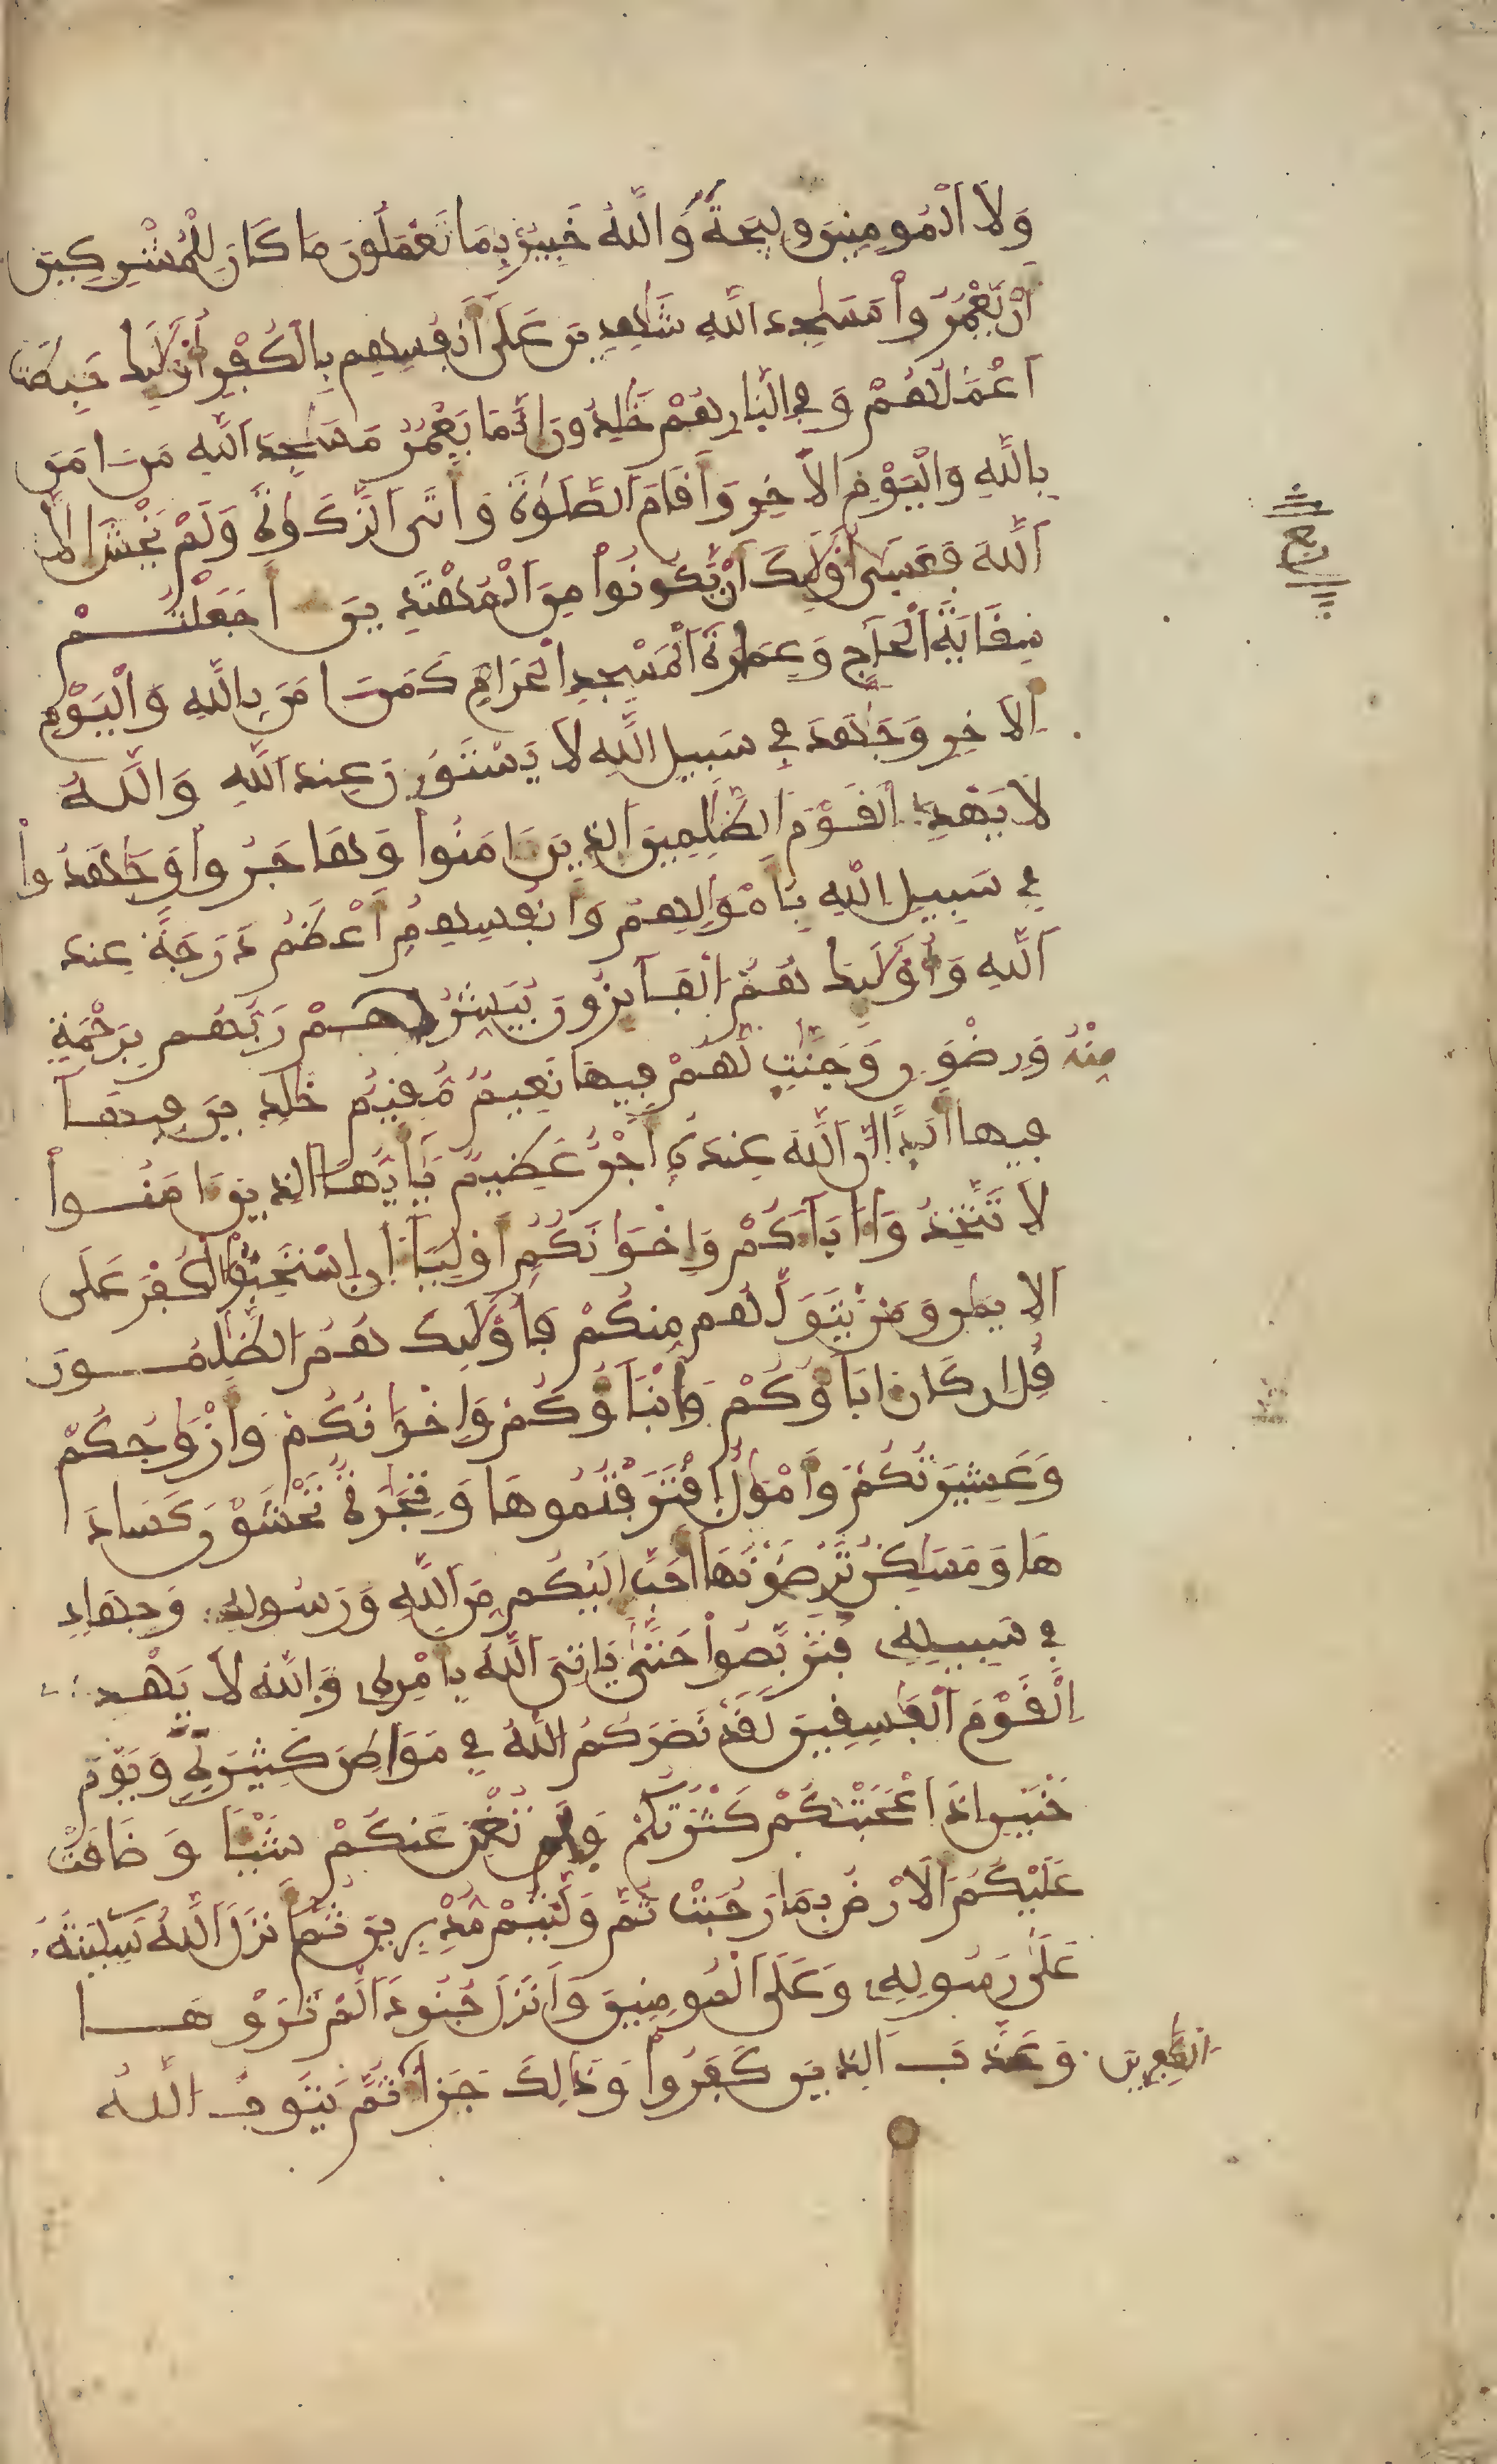 وَلَا الْمُومِنِينَ وَلِيجَةً وَاللَّهُ خَبِيرٌ بِمَا تَعْمَلُونَ مَا كَانَ لِلْمُشْرِكِينَ
أَنْ يَّعْمُرُوا مَسَٰجِدَ اللَّهِ شَٰهِدِينَ عَلَىٰ أَنفُسِهِم بِالْكُفْرِ أُوْلَٰئِكَ حَبِطَتَ
اَعْمَٰلُهُمْ وَفِي النَّارِ هُمْ خَٰلِدُونَ إِنَّمَا يَعْمُرُ مَسَٰجِدَ اللَّهِ مَنَ اٰمَنَ
بِاللَّهِ وَالْيَوْمِ الْأَخِرِ وَأَقَامَ الصَّلَوٰةَ وَءَاتَى الزَّكَوٰةَ وَلَمْ يَخْشَ إِلَّا
اللَّهَ فَعَسَىٰ أُوْلَٰئِكَ أَنْ يَّكُونُوا مِنَ الْمُهْتَدِينَ أَجَعَلْتُمْ
سِقَايَةَ الْحَآجِّ وَعِمَٰرَةَ الْمَسْجِدِ الْحَرَامِ كَمَنَ اٰمَنَ بِاللَّهِ وَالْيَوْمِ
الْأَخِرِ وَجَٰهَدَ فِي سَبِيلِ اللَّهِ لَا يَسْتَوُونَ عِندَ اللَّهِ وَاللَّهُ
لَا يَهْدِي الْقَوْمَ الظَّٰلِمِينَ الذِينَ ءَامَنُوا وَهَاجَرُوا وَجَٰهَدُوا
فِي سَبِيلِ اللَّهِ بِأَمْوَٰلِهِمْ وَأَنفُسِهِمُ أَعْظَمُ دَرَجَةً عِندَ
اللَّهِ وَأُوْلَٰئِكَ هُمُ الْفَآئِزُونَ يُبَشِّرُهُمْ رَبُّهُم بِرَحْمَةٍ
مِنْهُ وَرِضْوَٰنٍ وَجَنَّٰتٍ لَّهُمْ فِيهَا نَعِيمٌ مُّقِيمٌ خَٰلِدِينَ فِيهَا
فِيهَا أَبَدًا إِنَّ اللَّهَ عِندَهُ أَجْرٌ عَظِيمٌ يَٰأَيُّهَا الذِينَ ءَامَنُوا
لَا تَتَّخِذُوا ءَابَآءَكُمْ وَإِخْوَانَكُمُ أَوْلِيَآءَ اِنِ اسْتَحَبُّوا الْكُفْرَ عَلَى
الْإِيمَٰنِ وَمَنْ يَّتَوَلَّهُم مِنكُمْ فَأُوْلَٰئِكَ هُمُ الظَّٰلِمُونَ
قُلِ اِن كَانَ ءَابَآؤُكُمْ وَأَبْنَآؤُكُمْ وَإِخْوَانُكُمْ وَأَزْوَٰجُكُمْ
وَعَشِيرَتُكُمْ وَأَمْوَٰلٌ اقْتَرَفْتُمُوهَا وَتِجَٰرَةٌ تَخْشَوْنَ كَسَادَ
هَا وَمَسَٰكِنُ تَرْضَوْنَهَا أَحَبَّ إِلَيْكُم مِّنَ اللَّهِ وَرَسُولِهِ وَجِهَادٍ
فِي سَبِيلِهِ فَتَرَبَّصُوا حَتَّىٰ يَاتِيَ اللَّهُ بِأَمْرِهِ وَاللَّهُ لَا يَهْدِي
الْقَوْمَ الْفَٰسِقِينَ لَقَدْ نَصَرَكُمُ اللَّهُ فِي مَوَاطِنَ كَثِيرَةٍ وَيَوْمَ
حُنَيْنٍ اِذَ اَعْجَبَتْكُمْ كَثْرَتُكُمْ فَلَمْ تُغْنِ عَنكُمْ شَيْئًا وَضَاقَتْ
عَلَيْكُمُ الْأَرْضُ بِمَا رَحُبَتْ ثُمَّ وَلَّيْتُم مُّدْبِرِينَ ثُمَّ أَنزَلَ اللَّهُ سَكِينَتَهُ
عَلَىٰ رَسُولِهِ وَعَلَى الْمُومِنِينَ وَأَنزَلَ جُنُودًا لَّمْ تَرَوْهَا
وَعَذَّبَ الذِينَ كَفَرُوا وَذَٰلِكَ جَزَآءُ ثُمَّ يَتُوبُ اللَّهُ
الْكَٰفِرِينَ